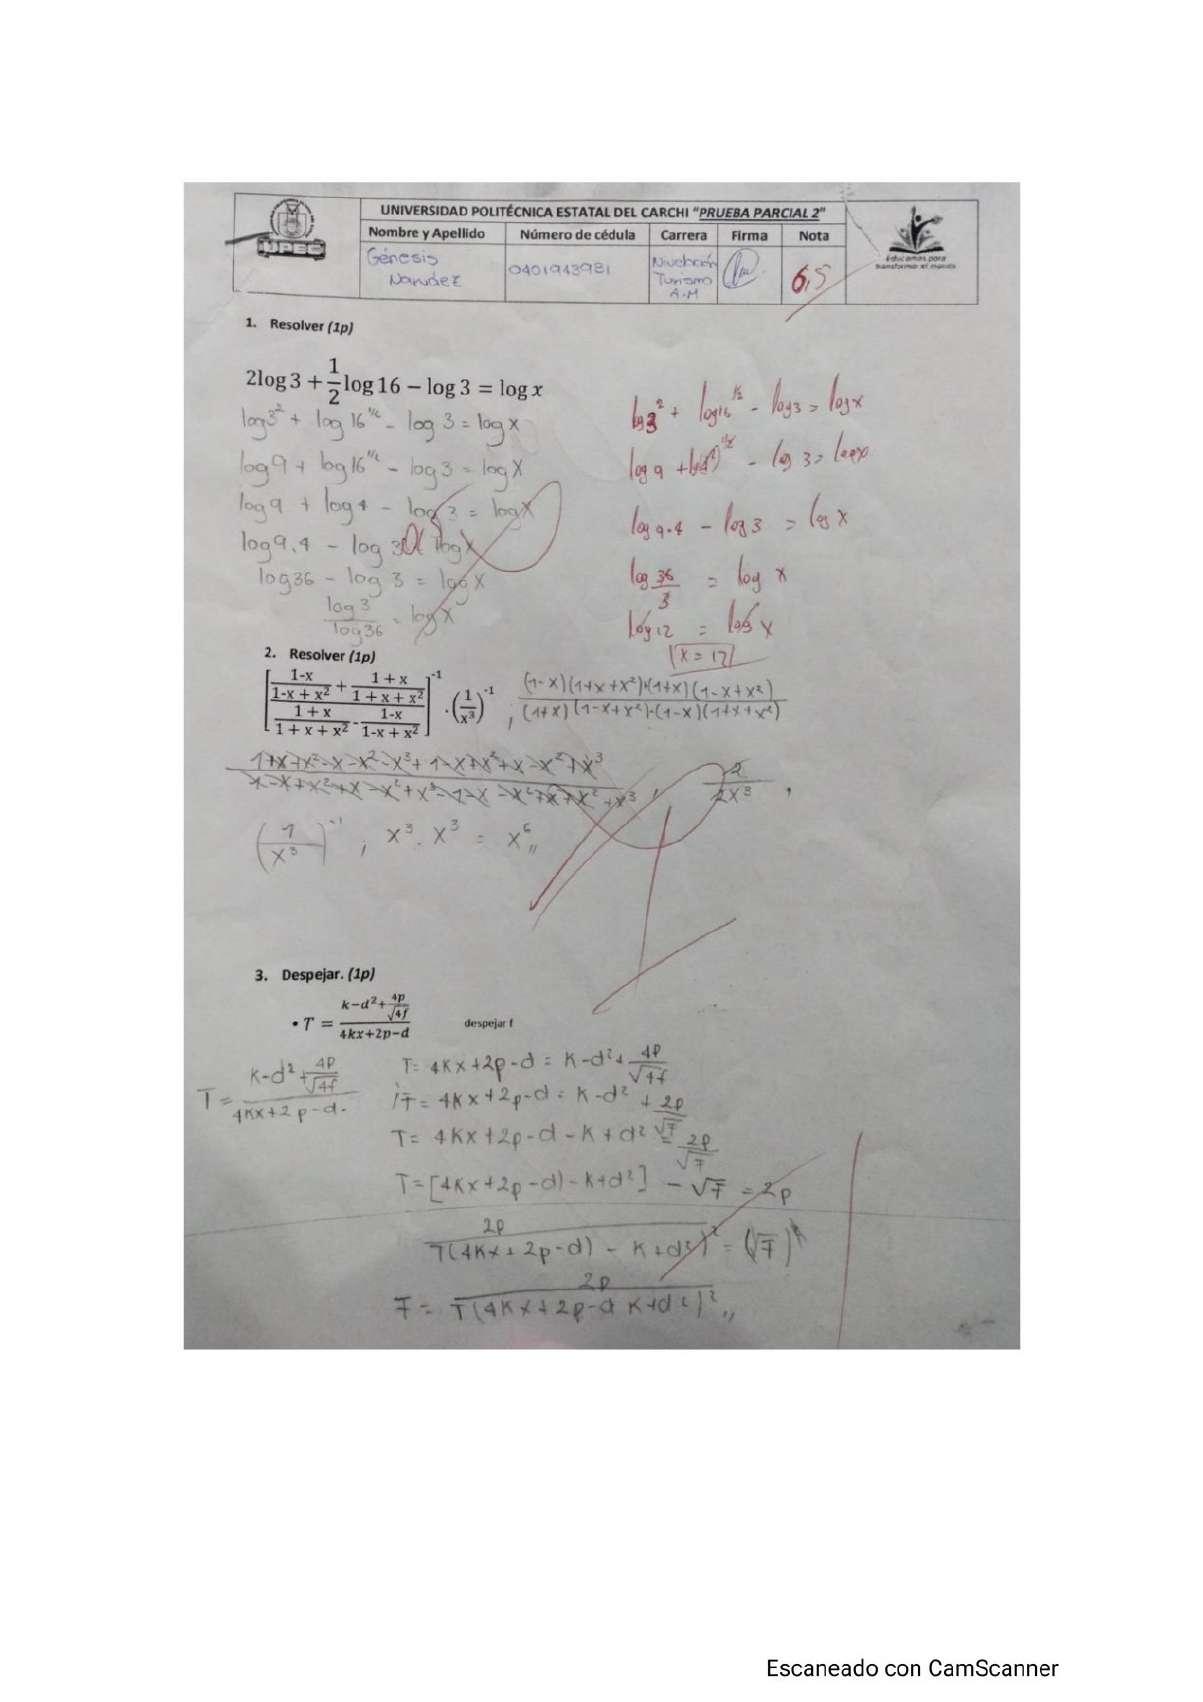 UNIVERSIDAD POLITÉCNICA ESTATAL DEL CARCHI "PRUEBA PARCIAL 2"
Nombre y Apellido Número de cédula Carrera Firma Nota
UPEC
Génesis Narváez 0401943981 Nivelación Turismo A.M 6,5
Educamos para transformar el mundo
1. Resolver (1p)
2log 3 + 1/2 log 16 − log 3 = log x
log3² + log 16^1/2 - log 3 = log x
log 9 + log 16^1/2 - log 3 = log x
log 9 + log 4 - log 3 = log x
log 9.4 - log 3 = log x
log 36 - log 3 = log x
log 3 / log 36 = log x
log 3² + log 16^1/2 - log 3 = log x
log 9 + log - log 3 = log x
log 9.4 - log 3 = log x
log 36/3 = log x
log 12 = log x
x = 12
2. Resolver (1p)
[((1-x)/(1-x + x²) + (1 + x)/(1 + x + x²)) / ((1 + x)/(1 + x + x²) - (1-x)/(1-x + x²))]^-1 . (1/x³)^-1 ; (1-x)(1+x+x²)+(1+x)(1-x+x²) / (1+x)(1-x+x²)-(1-x)(1+x+x²)
1+x+x²-x-x²-x³+1-x+x²+x-x²+x³ / 1-x+x²+x-x²+x³-1-x-x²+x+x²+x³ , 2 / 2x³ ,
(1/x³)^-1 ; x³ . x³ = x⁶,,
3. Despejar. (1p)
• T = (k−d²+4p/√4f) / (4kx+2p−d) despejar f
T = (K-d²+4p/√4f) / (4Kx+2p-d.
T= 4Kx+2p-d = K-d²+ 4P/√4f
T= 4Kx+2p-d = K-d² + 2p/√F
T= 4Kx+2p-d-K+d² = 2p/√F
T=[4Kx+2p-d)-K+d²] - √F = 2p
2p / T(4Kx+2p-d) - K+d²)² = (√F)²
F = 2p / T(4Kx+2p-d K+d²)²,,
Escaneado con CamScanner